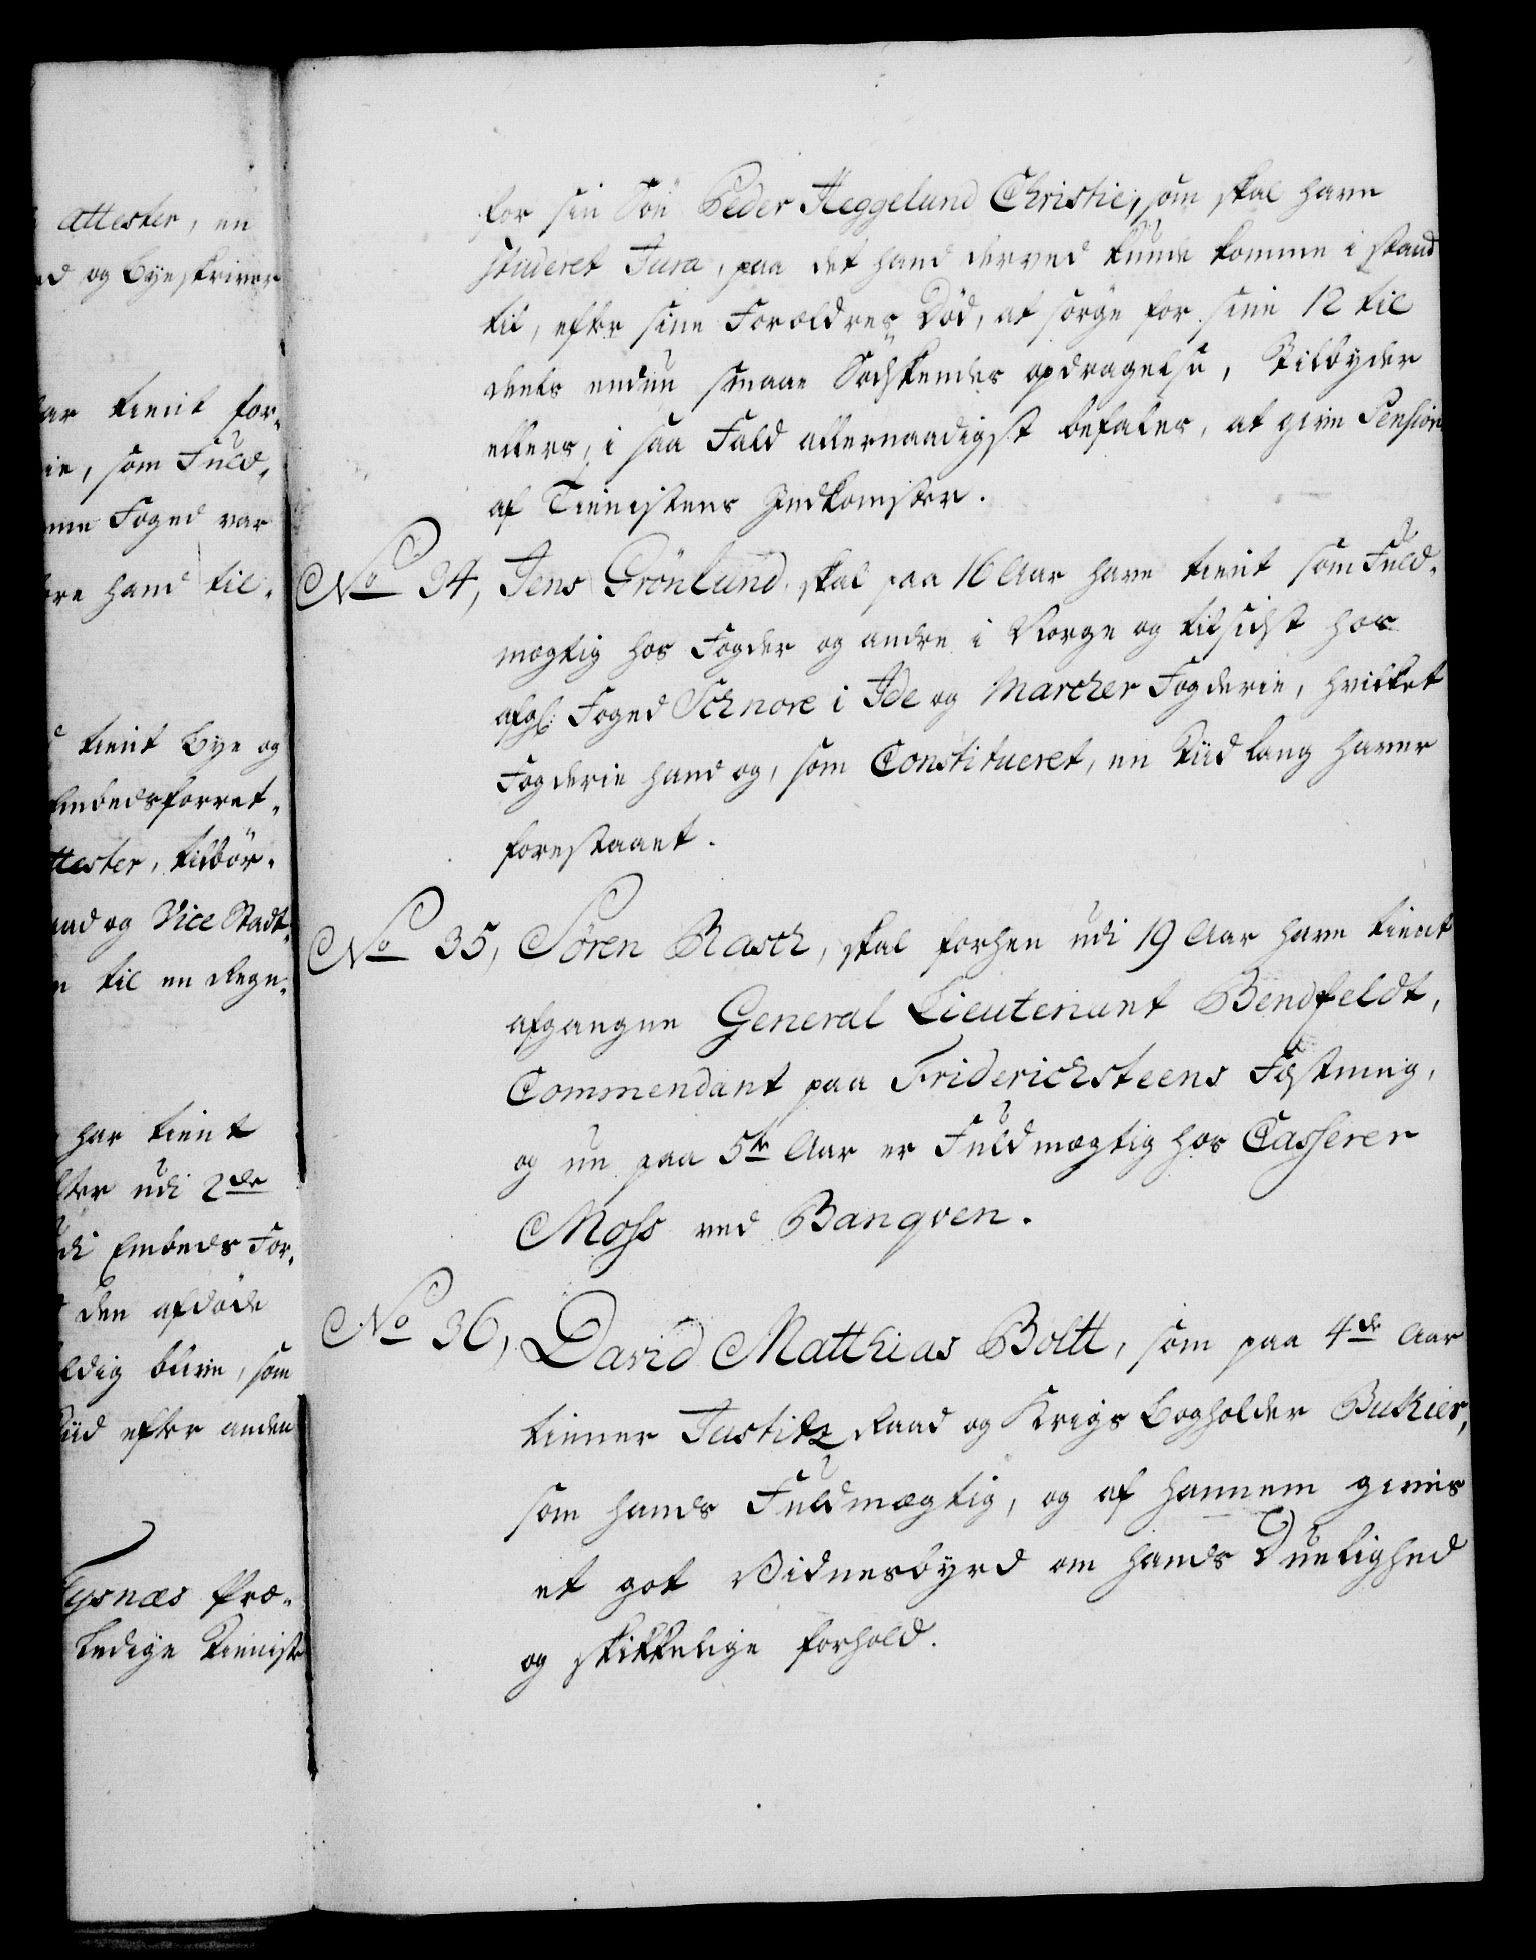 Attester, en
og Byeskriver
tient for-
som Fuld-
Foged var
hand til-
tient Bye og
Embedsforret-
tilbør-
og Vice Stadt-
til en Regn-
har tient
udi 2de
Embeds For-
den afdøde
blive, som
efter anden
Tysnæs Præ-
ledige Tieniste
for sin Søn Peder Heggelund Christie, som skal have
studeret Jura, paa det hand derved kunde komme i stand
til, efter sine Forældres Død, at sørge for sine 12 til
deels endnu smaae Sødskendes opdragelse, Tilbyder
ellers, i saa Fald allernaadigst befales, at give Pension
af Tienistens Indkomster.
No 34, Jens Grönlund skal paa 16 Aar have tient som Fuld-
mægtig hos Fogder og andre i Norge og tilsidst hos
afg: Foged Schnore i Ide og Marcher Fogderie, hvilket
Fogderie hand og, som Constitueret, en Tiid lang haver
forestaaet.
No 35, Sören Rasch, skal forhen udi 19 Aar have tient
afgangne General Lieutenant Bendfeldt,
Commendant paa Friderichsteens Fæstning,
og nu paa 5te Aar er Fuldmægtig hos Casserer
Moss ved Banqven.
No 36, David Matthias Boltt, som paa 4de Aar
tiener Justitz Raad og Krigs Bogholder Bukier,
som hands Fuldmægtig, og af hannem gives
et got Vidnesbyrd om hands Duelighed
og skikkelige forhold.